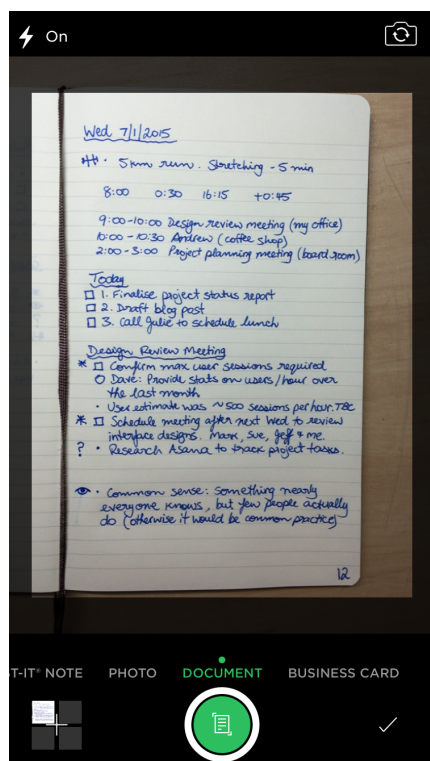 On
Wed 7/1/2015
· 5km run. Stretching - 5 min
8:00 0:30 16:15 +0:45
9:00-10:00 Design review meeting (my office)
10:00-10:30 Andrew (coffee shop)
2:00-3:00 Project planning meeting (board room)
Today
1. Finalise project status report
2. Draft blog post
3. Call Julie to schedule lunch
Design Review Meeting
* Confirm max user sessions required
Dave: Provide stats on users/hour over
the last month
· User estimate was ~500 sessions per hour. TBC
* Schedule meeting after next Wed to review
interface designs. Mark, Sue, Jeff & me.
? · Research Asana to track project tasks.
· Common sense: something nearly
everyone knows, but few people actually
do (otherwise it would be common practice)
12
T-IT® NOTE PHOTO DOCUMENT BUSINESS CARD